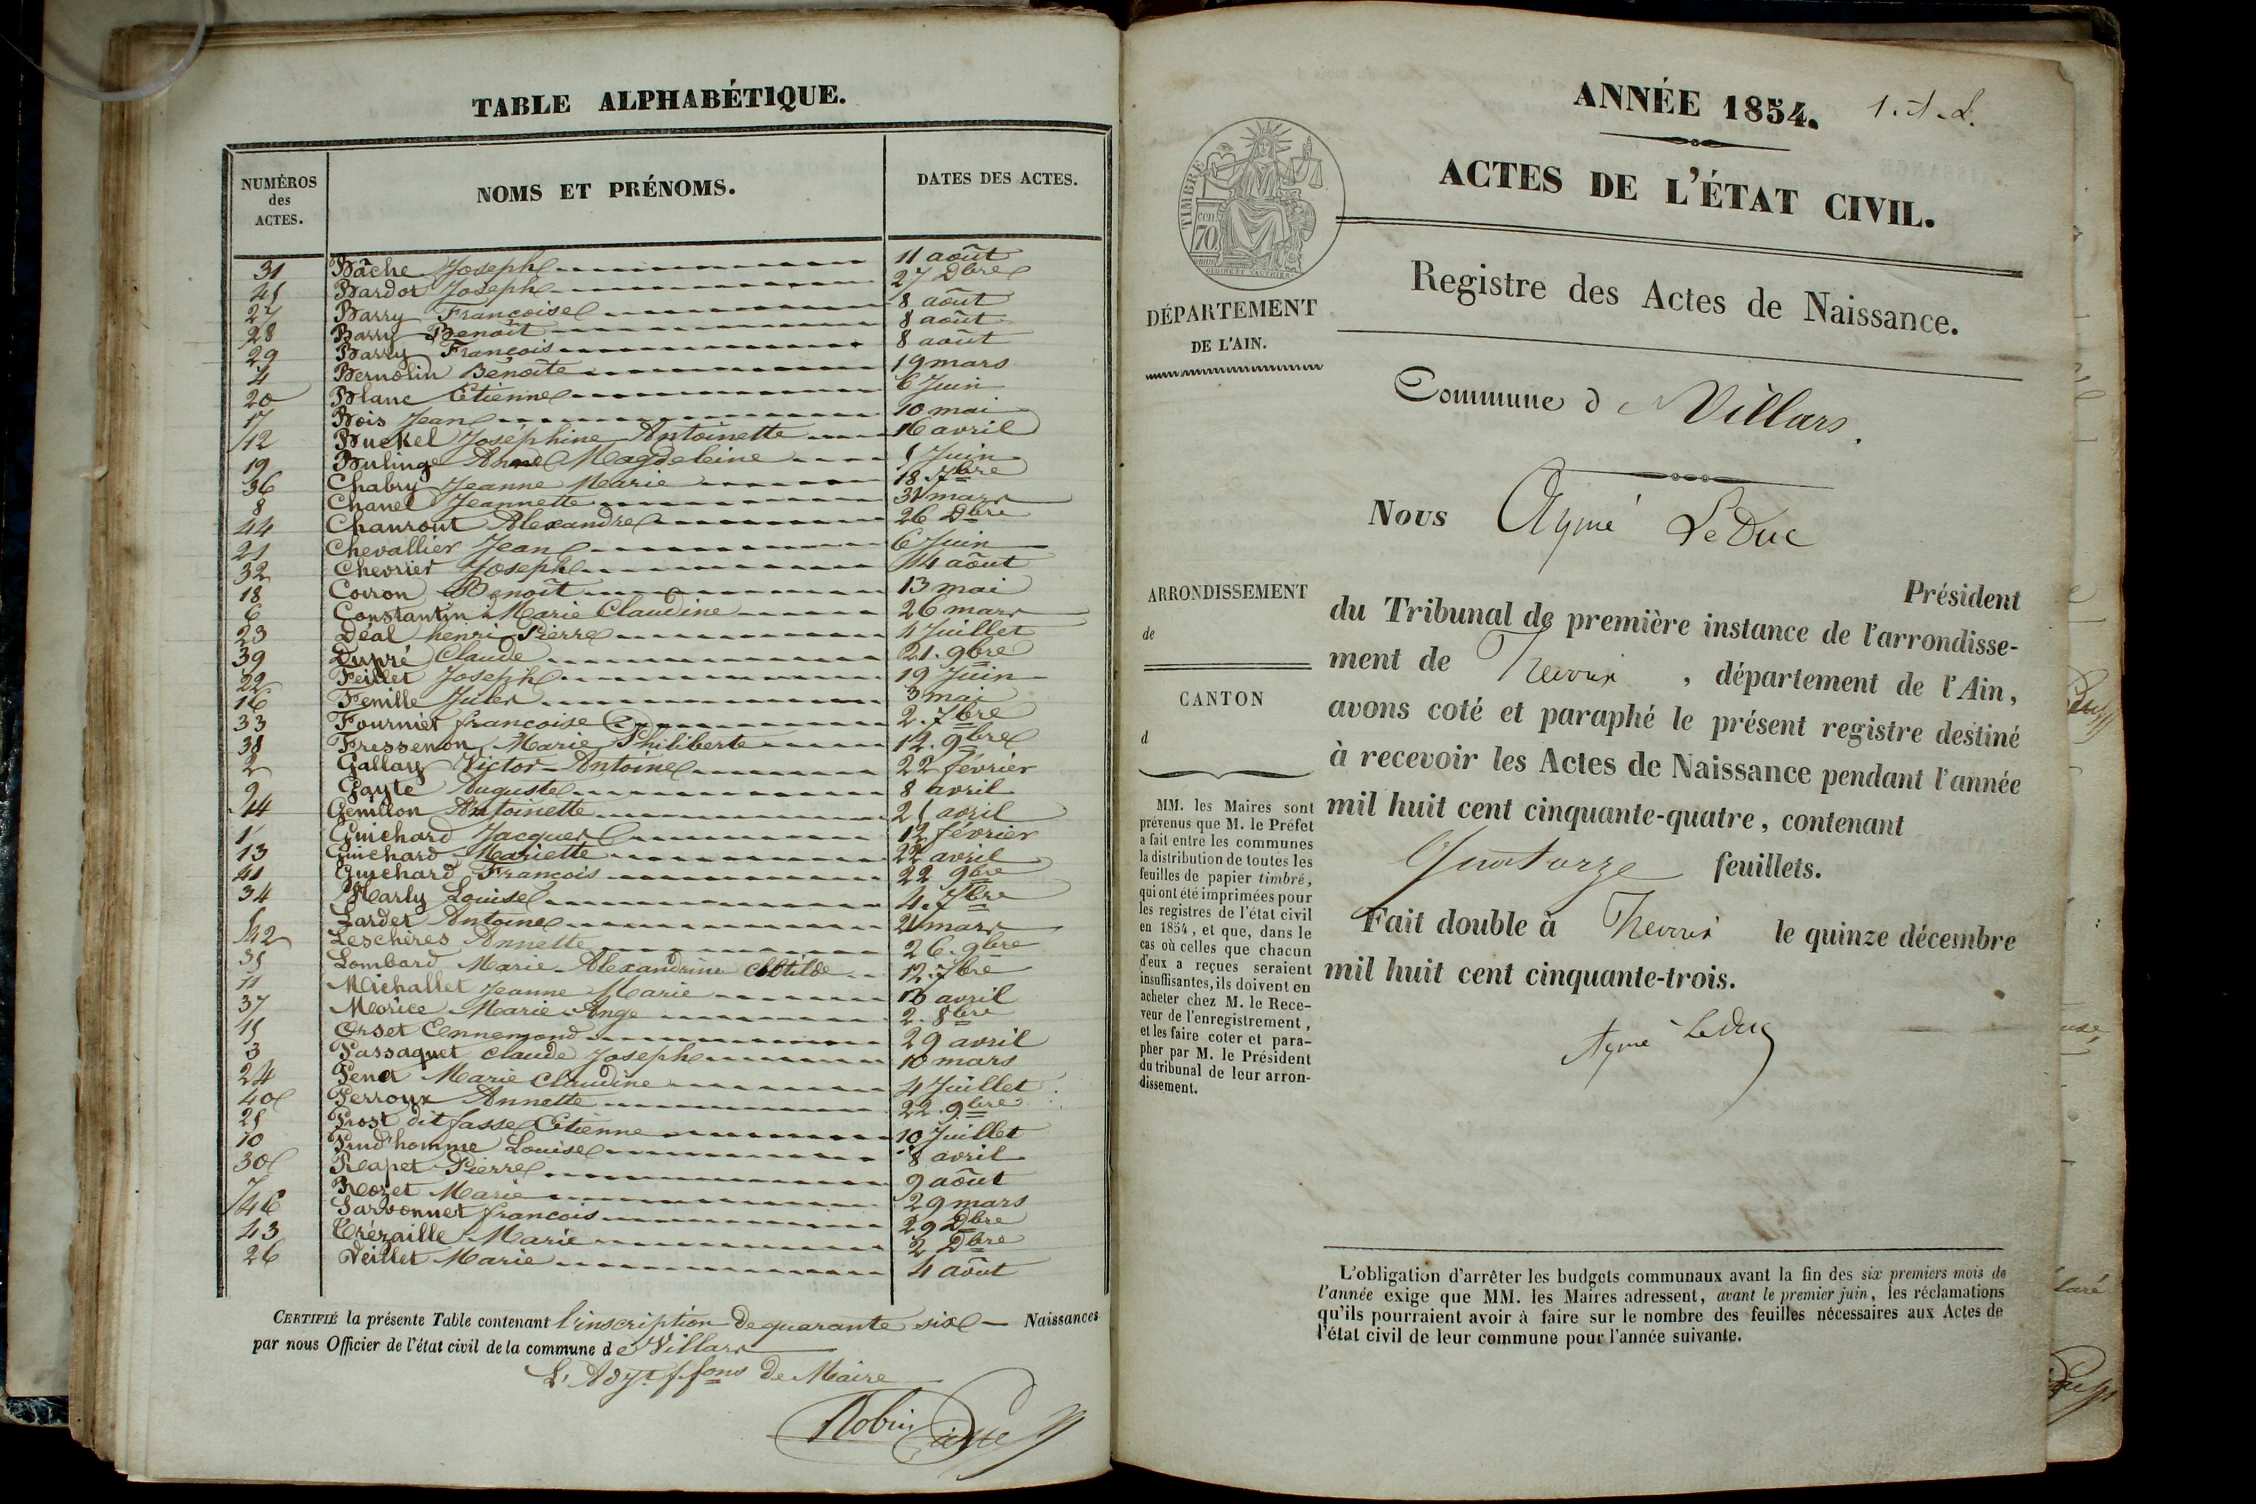 TABLE ALPHABÉTIQUE.
NUMÉROS des ACTES. NOMS ET PRÉNOMS. DATES DES ACTES.
31 Bâche Joseph 11 août
45 Bardot Joseph 27 Dbre
27 Barry Francoise 8 août
28 Barry Benoît 8 août
29 Barry Francois 8 août
4 Bernolin Benoîte 19 mars
20 Blanc Etienne 6 Juin
17 Bois Jean 10 mai
12 Buekel Joséphine Antoinette 16 avril
19 Bulinge Anne Magdeleine 5 Juin
36 Chabry Jeanne Marie 18 7bre
8 Chanel Jeannette 31 mars
44 Chanrout Alexandre 26 Dbre
21 Chevallier Jean 6 Juin
32 Chevrier Joseph 14 août
18 Coiron Benoît 13 mai
6 Constantin Marie Claudine 26 mars
23 Déal henri Pierre 4 Juillet
39 Dupré Claude 21. 9bre
22 Feillet Joseph 19 Juin
16 Fenille Jules 3 mai
33 Fournier francoise 2. 7bre
38 Fressenon Marie Philiberte 12. 9bre
2 Gallay Victor Antoine 22 février
9 Gayte Auguste 8 avril
14 Genillon Antoinette 25 avril
1 Guichard Jacques 12 février
13 Guichard Mariette 22 avril
41 Guichard Francois 22 9bre
34 Marly Louise 4. 7bre
5 Lardet Antoine 21 mars
42 Leschères Annette 26. 9bre
35 Lombard Marie Alexandrine Clotilde 12. 7bre
11 Michallet Jeanne Marie 13 avril
37 Morice Marie Ange 2. 8bre
15 Orset Ennemond 29 avril
3 Passaquet claude Joseph 10 mars
24 Penet Marie Claudine 4 Juillet
40 Perroux Annette 22. 9bre
25 Prost dit Jasse Etienne 10 Juillet
10 Prud'homme Louise 8 avril
30 Reapet Pierre 9 août
7 Rozet Marie 29 mars
46 Sarvonnet francois 29 Dbre
43 Trézaille Marie 2 Dbre
26 Veillet Marie 4 août
CERTIFIÉ la présente Table contenant l'inscription de quarante six Naissances
par nous Officier de l'état civil de la commune de Villars
L'Adjt. f.fons de Maire
Robin
ANNÉE 1854. 1. A. L.
ACTES DE L'ÉTAT CIVIL.
Registre des Actes de Naissance.
TIMBRE
70
DÉPARTEMENT
DE L'AIN.
Commune d Villars.
Nous Aymé LeDuc
Président
du Tribunal de première instance de l'arrondisse-
ment de Trevoux , département de l'Ain,
avons coté et paraphé le présent registre destiné
à recevoir les Actes de Naissance pendant l'année
mil huit cent cinquante-quatre, contenant
Quatorze feuillets.
Fait double à Trevoux le quinze décembre
mil huit cent cinquante-trois.
Aymé LeDuc
ARRONDISSEMENT
de
CANTON
d
MM. les Maires sont
prévenus que M. le Préfet
a fait entre les communes
la distribution de toutes les
feuilles de papier timbré,
qui ont été imprimées pour
les registres de l'état civil
en 1854, et que, dans le
cas où celles que chacun
d'eux a reçues seraient
insuffisantes, ils doivent en
acheter chez M. le Rece-
veur de l'enregistrement,
et les faire coter et para-
pher par M. le Président
du tribunal de leur arron-
dissement.
L'obligation d'arrêter les budgets communaux avant la fin des six premiers mois de
l'année exige que MM. les Maires adressent, avant le premier juin, les réclamations
qu'ils pourraient avoir à faire sur le nombre des feuilles nécessaires aux Actes de
l'état civil de leur commune pour l'année suivante.